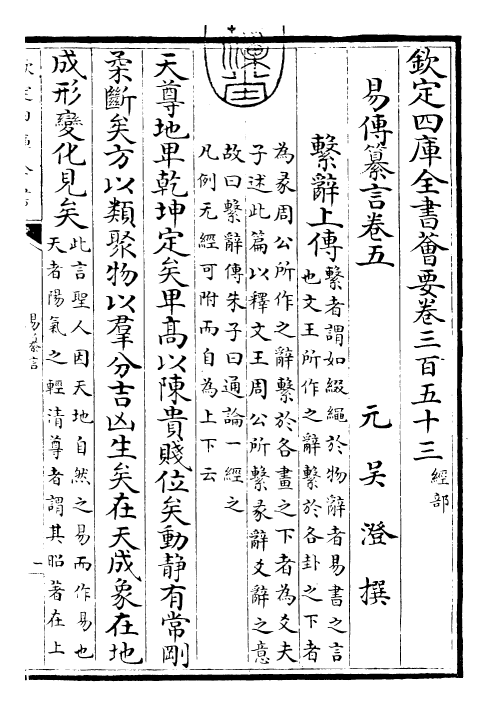 欽定四庫全書薈要卷三百五十三 經部
易傳纂言卷五 元 吳澄 撰
繫辭上傳 繫者謂如綴繩於物辭者易書之言
也文王所作之辭繫於各卦之下者
為彖周公所作之辭繫於各畫之下者為爻夫
子述此篇以釋文王周公所繫彖辭爻辭之意
故曰繫辭傳朱子曰通論一經之
凡例无經可附而自為上下云
天尊地卑乾坤定矣卑高以陳貴賤位矣動靜有常剛
柔斷矣方以類聚物以羣分吉凶生矣在天成象在地
成形變化見矣 此言聖人因天地自然之易而作易也
天者陽氣之輕清尊者謂其昭著在上
易纂言
一